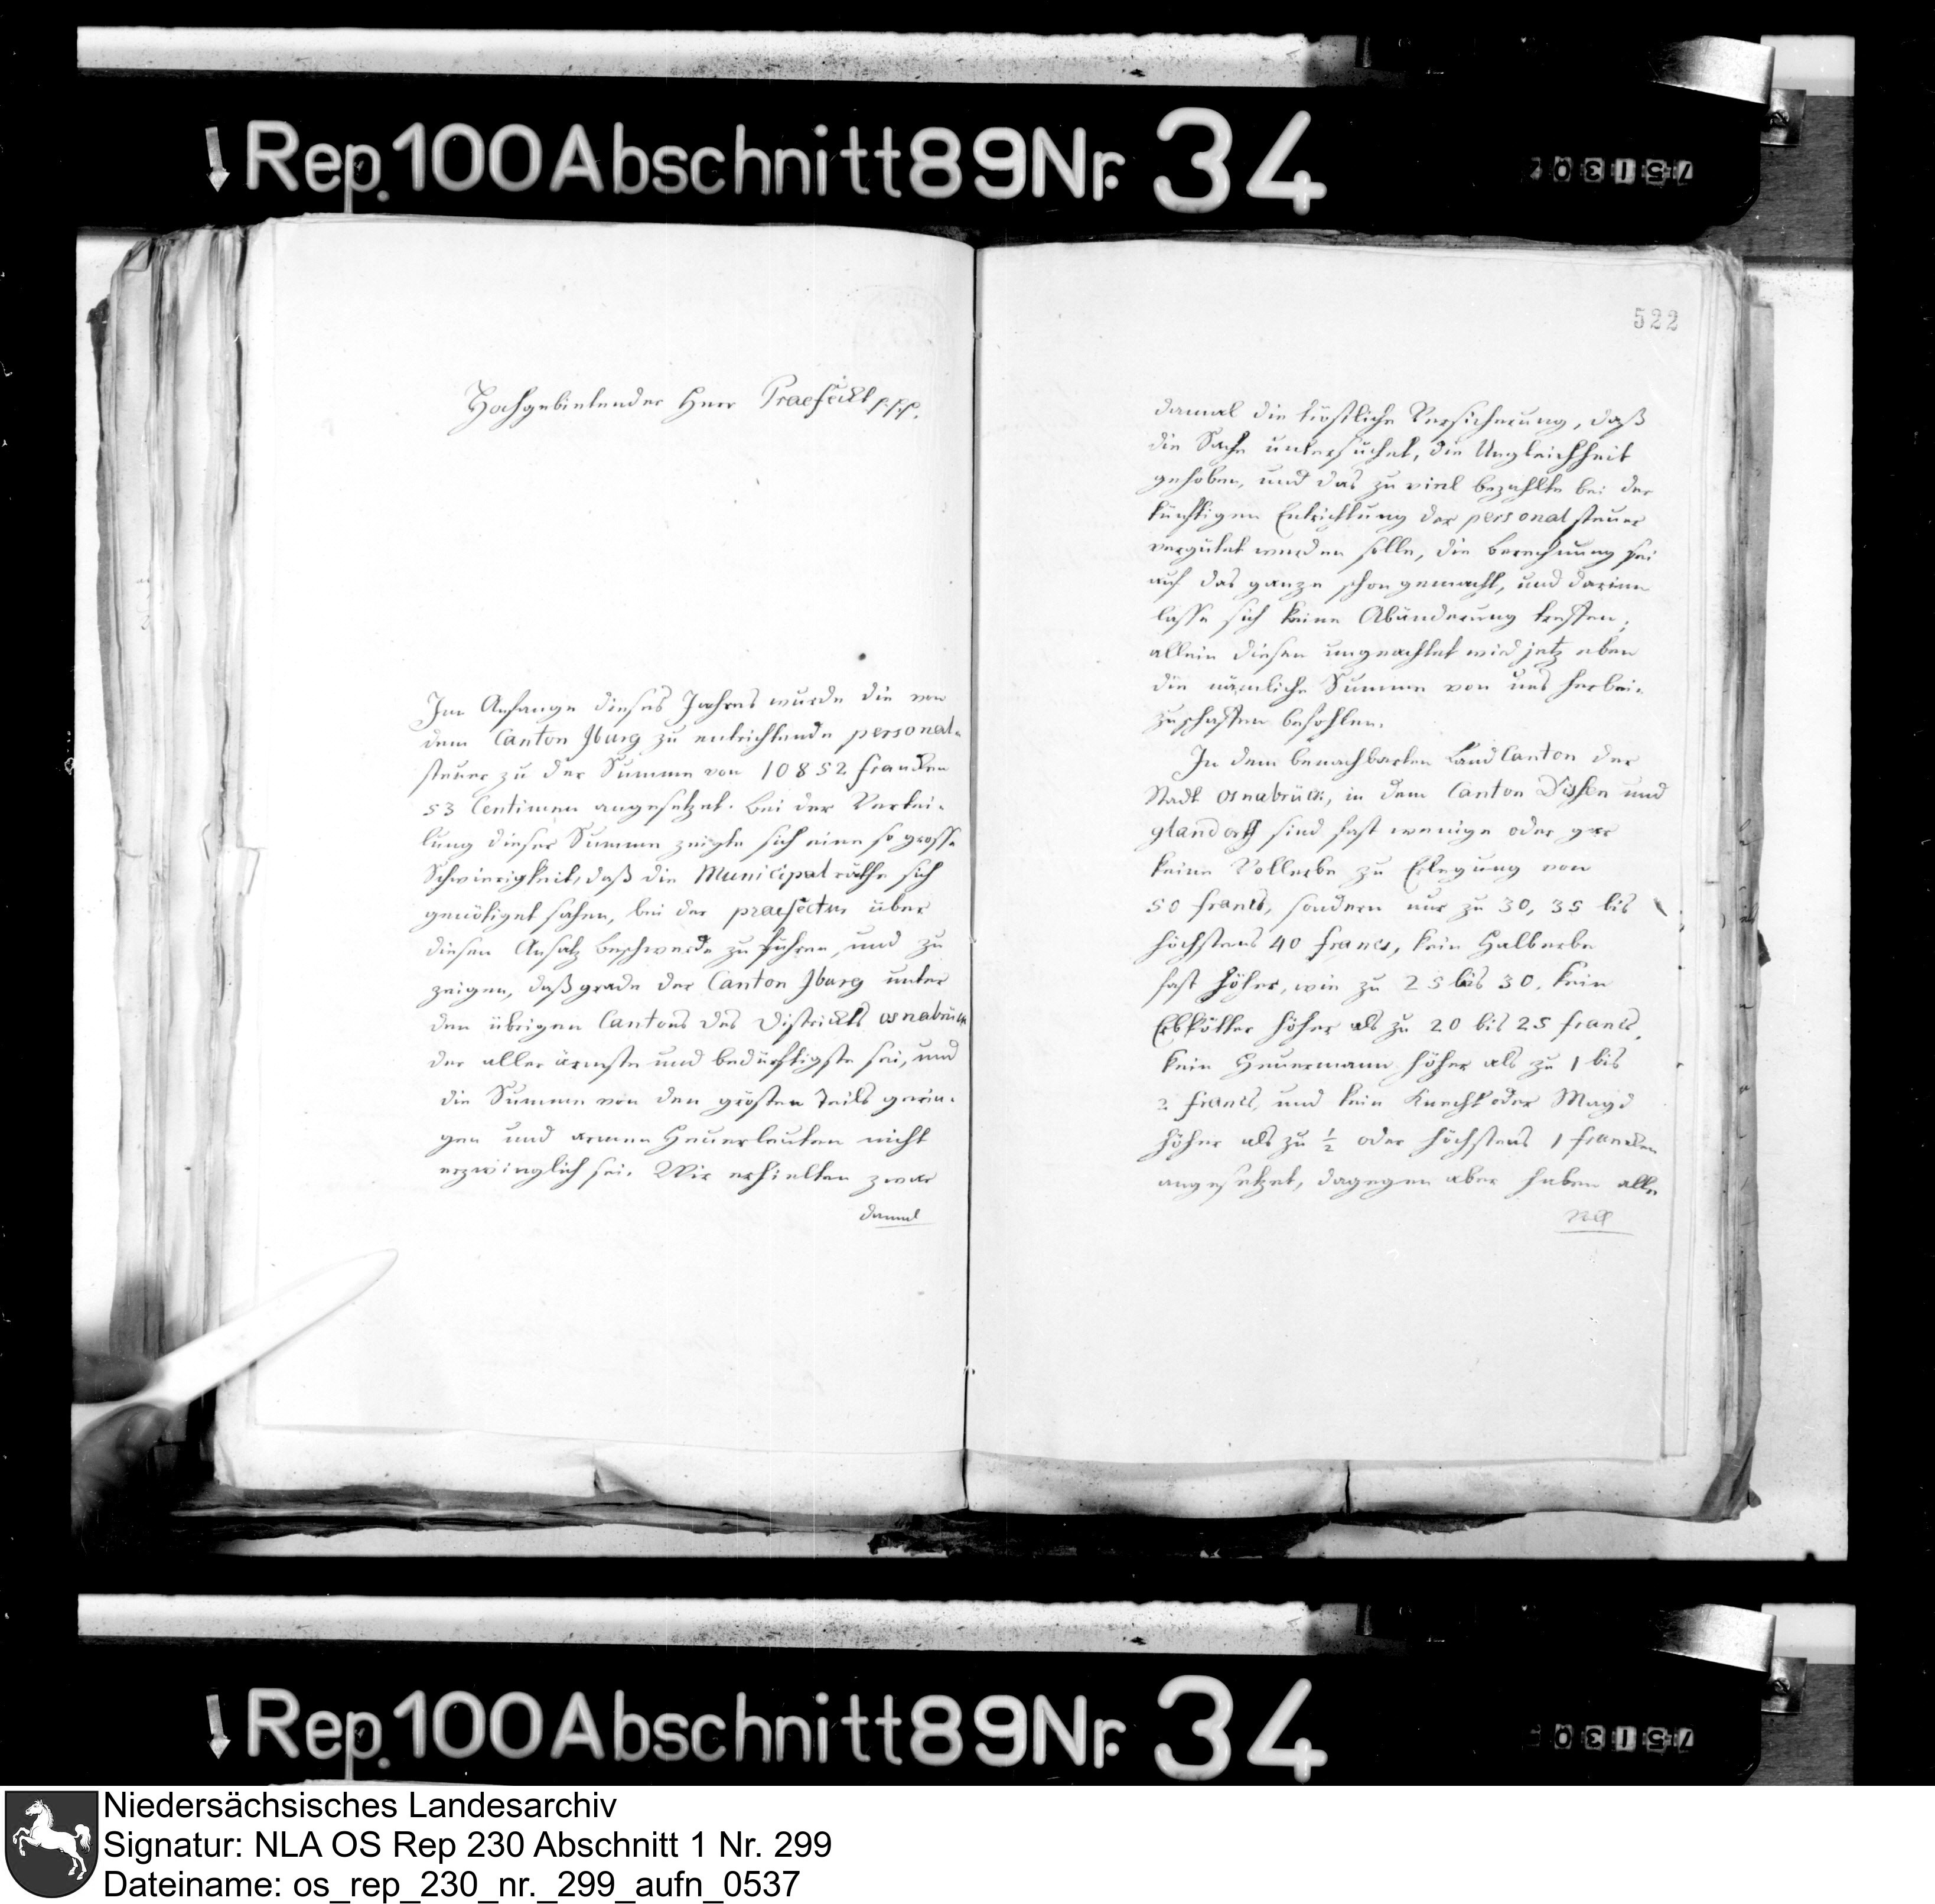 Rep. 100 Abschnitt 89 Nr. 34
751302
Hochgebietender Herr Praefeckt p.p.p.
Im Anfange dieses Jahres wurde die von
dem Canton Jburg zu entrichtende personal-
steuer zu der Summe von 10852 francken
53 Centimen angesetzet. Bei der Vertei-
lung dieser Summe zeigte sich eine so grosse
Schwierigkeit, daß die Municipalräthe sich
genötiget sahen, bei der praefectur über
diesen Ansatz beschwerde zu führen, und zu
zeigen, daß grade der Canton Jburg unter
den übrigen Cantons des Districkts osnabrück
der aller ärmste und bedürftigste sei, und
die Summe von den grösten Teils gerin-
gen und armen Heuerleuten nicht
erzwinglich sei. Wir erhielten zwar
damal
522
damal die tröstliche Versicherung, daß
die Sache untersuchet, die Ungleichheit
gehoben, und das zu viel bezahlte bei der
künftigen Entrichtung der personalsteuer
vergütet werden solle, die berechnung sei
auf das ganze schon gemacht, und darinn
lasse sich keine Abänderung treffen;
allein diesen ungeachtet wird jetz eben
die nämliche Summe von uns herbei-
zuschaffen befohlen.
In dem benachbarten LandCanton der
Stadt osnabrück, in dem Canton Dissen und
glandorff sind fast wenige oder gar
keine Vollerbe zu Erlegung von
50 francs, sondern nur zu 30, 35 bis
höchstens 40 francs, kein Halberbe
fast höher, wie zu 25 bis 30. kein
Erbkötter höher als zu 20 bis 25 francs,
kein Heuermann höher als zu 1 bis
2 francs, und kein Knecht oder Magd
höher als zu ½ oder höchstens 1 francken
angesetzet, dagegen aber haben alle
Rep. 100 Abschnitt 89 Nr. 34
75130
Niedersächsisches Landesarchiv
Signatur: NLA OS Rep 230 Abschnitt 1 Nr. 299
Dateiname: os_rep_230_nr._299_aufn_0537